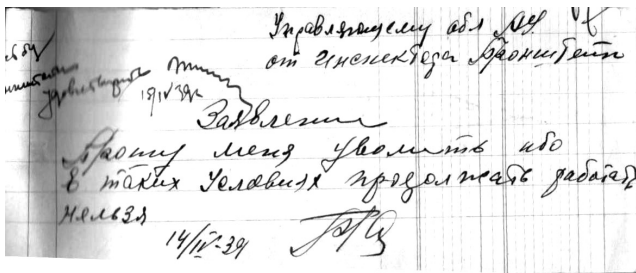 Управляющему обл АУ
от инспектора Бронштейн
удовлетворить
19/IV 39г
Заявление
Прошу меня уволить ибо
в таких условиях продолжать работать
нельзя
14/IV-39